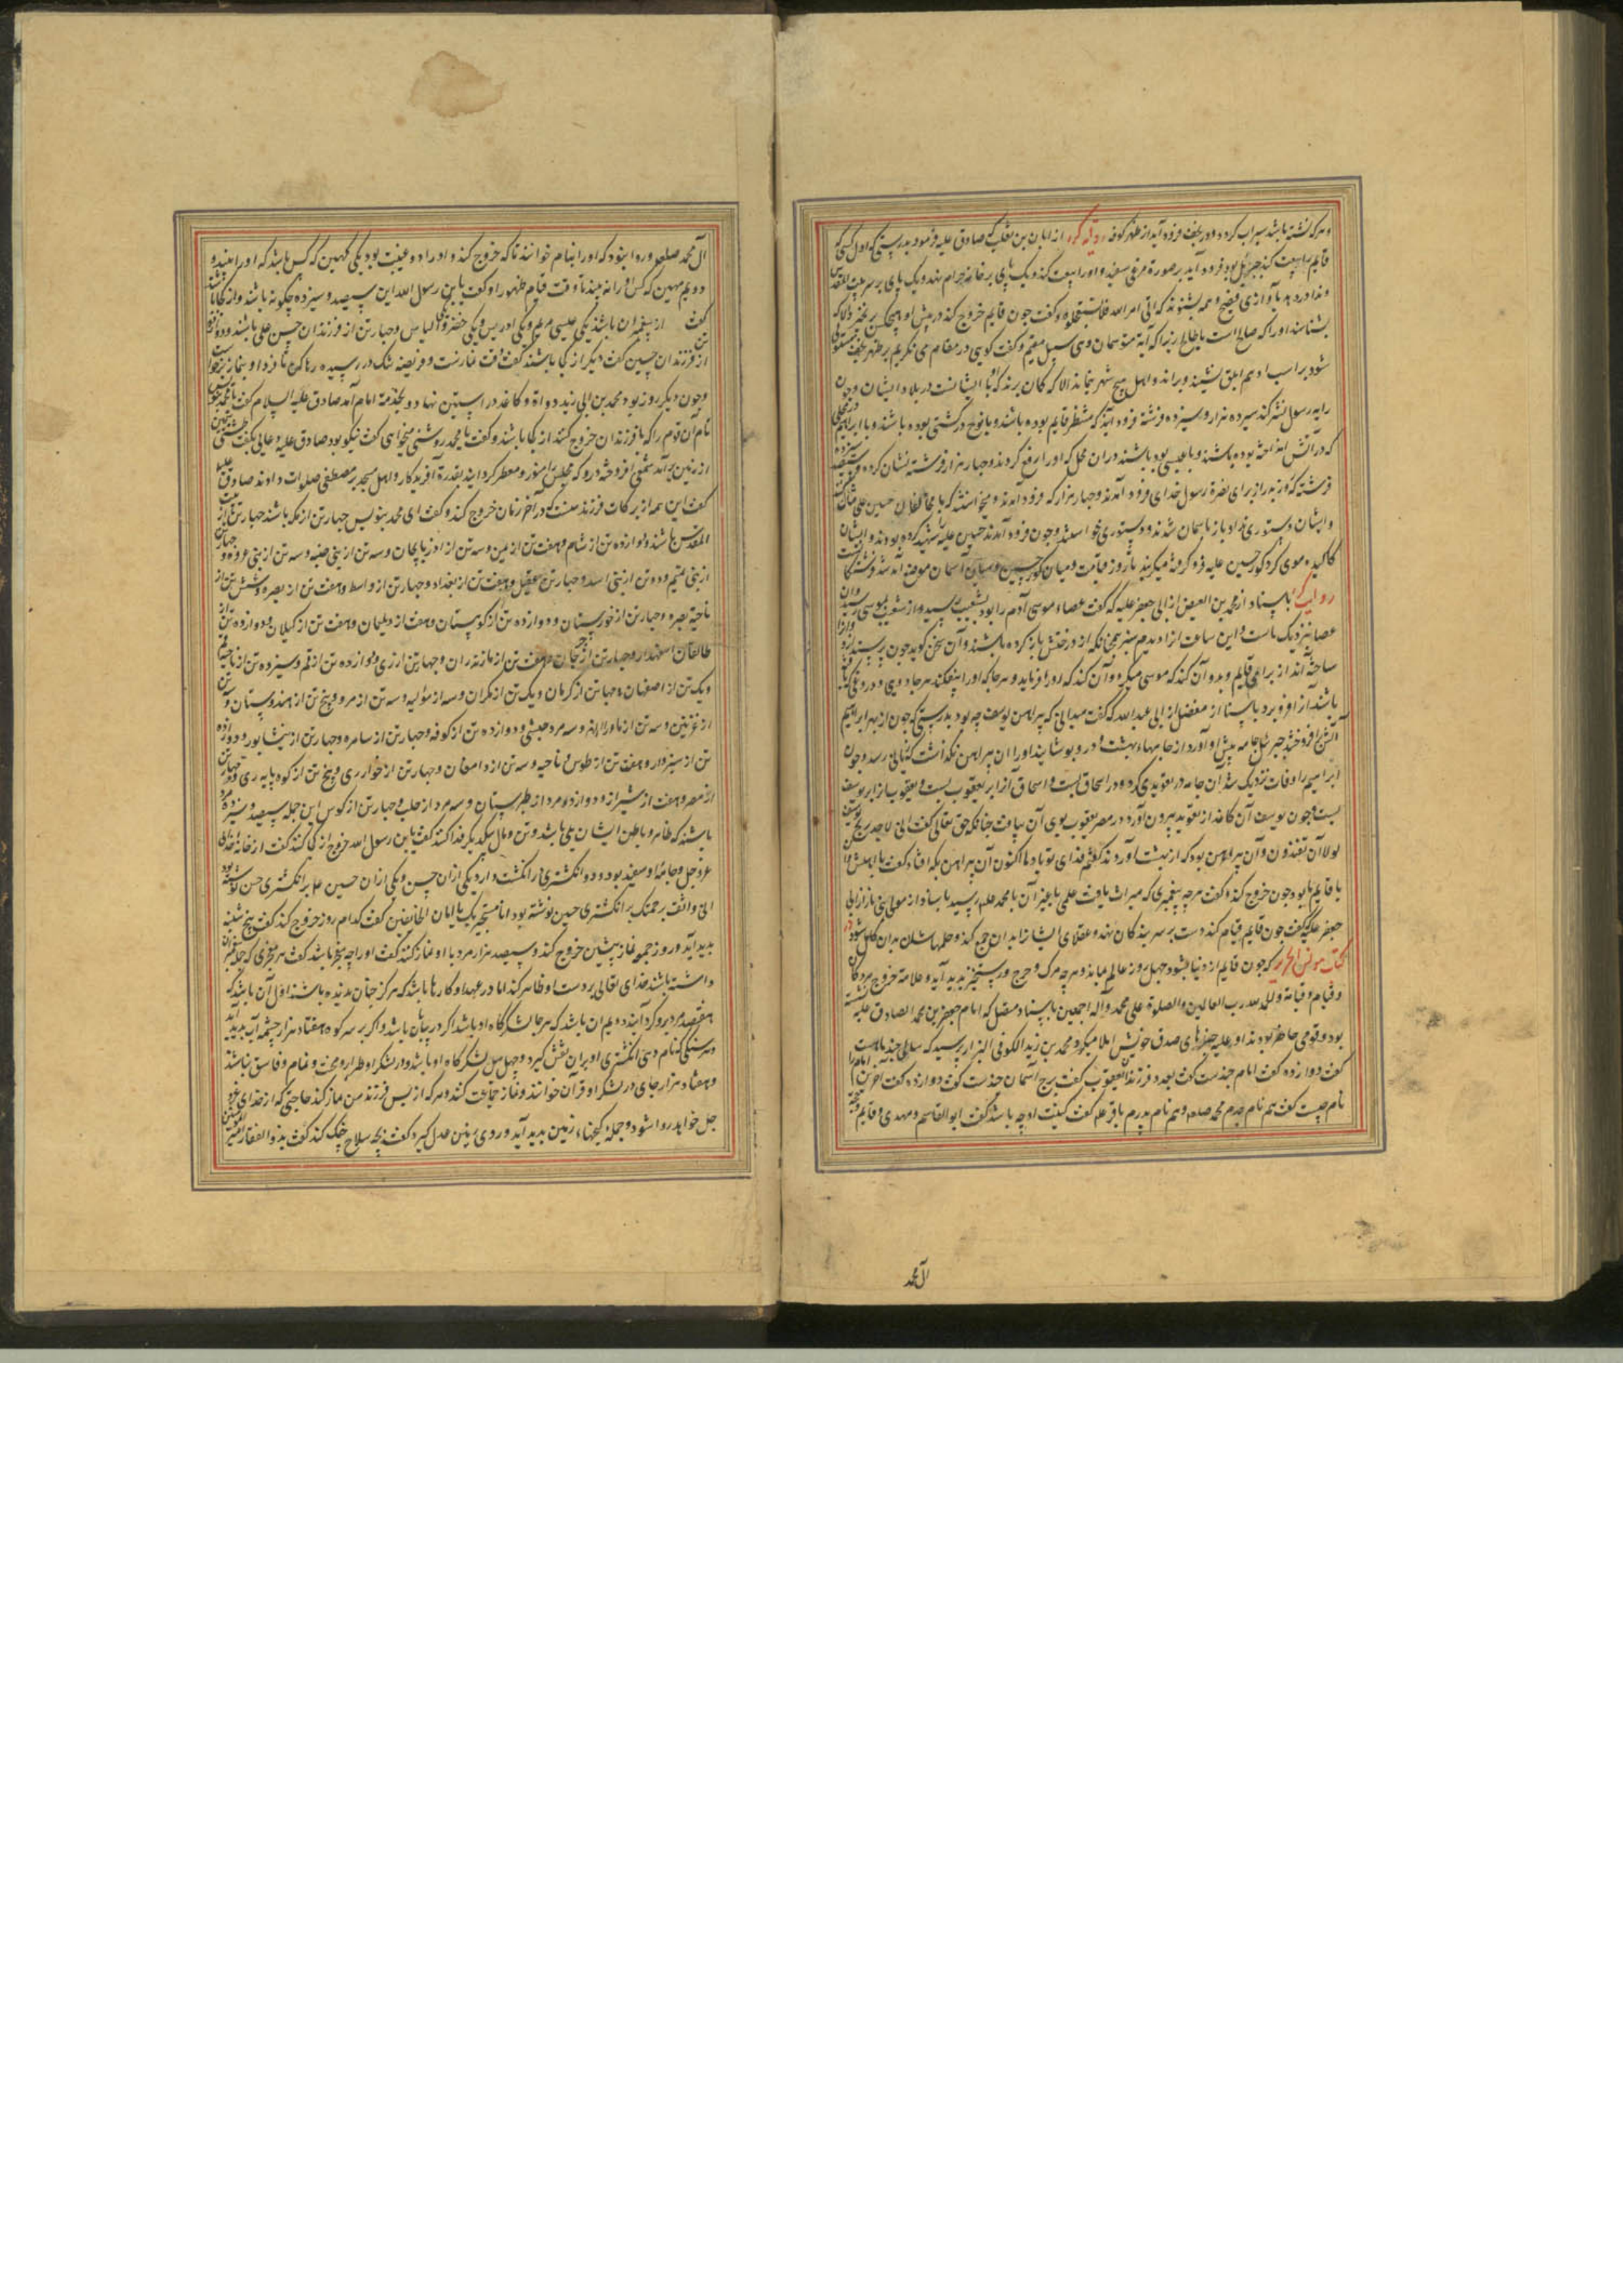 و هر که تشنه باشد سیراب کردد و در نجف فرود آید از ظهر کوفه روایة کرد از ابان بن تغلب که صادق علیه فرمود بدرستی که اول کسی که
قایم را بیعت کند جبرئیل بود فرود آید بر صورة مرغی سفید و او را بیعت کند و یک پای بر خانه حرام نهد و یک پای بر سر بیت المقدس
و ندا در دهد بآوازی فصیح و همه بشنوند که اتی امر الله فلا تستعجلوه و گفت چون قایم خروج کند در پیش او هیچکس بر نخیزد الا که
بشناسد او را که صالح است یا طالح زیرا که آیه متوسمان وی سبیل مقیم و گفت گویی در مقام می نگریم بر ظهر نجف
شود بر اسب ادهم ابلق نشیند و براند و اهل هیچ شهر نماند الا که گمان برند که او با ایشانست در بلاد ایشان و چون
رایه رسول نشر کند سیزده هزار و سیزده فرشته فرود آیند که منتظر قایم بوده باشند و با نوح در کشتی بوده باشند و با ابراهیم
که در آتش انداخته بوده باشند و با عیسی بوده باشند در ان محل که او را رفع کردند و چهار هزار فرشته نشان کرده و سیصد و سیزده
فرشته که روز بدر از برای نصرة رسول خدای فرود آمدند و چهار هزار که فرود آمدند و میخواستند که با مخالفان حسین علی
و ایشان دستوری نداد باز بآسمان شدند و دستوری خواستند و چون فرود آمدند حسین علیه شهید کرده بودند و ایشان
کالیده موی گرد گور حسین علیه فرو گرفته میگریند تا روز قیامت و میان گور حسین و میان آسمان موضع آمد شد فرشتگان
روایت باسناد از محمد بن الفیض از ابی جعفر علیه که گفت عصاء موسی آدم را بود بشعیب رسید و از شعیب بموسی رسید و آن
عصا نزدیک ماست و این ساعت از او دیدم سبز همچنانکه از درختش باز کرده باشند و آن سخن گوید چون پرسند
ساخته اند از برای قایم و بدو آن کند که موسی میکرد و آن کند که او را فرماید و هر جا که او را بیفکند هر جادویی و دروغی که
باشد آنرا فرو برد باسناد از مفضل از ابی عبد الله که گفت میدانی که پیراهن یوسف چه بود بدرستی که چون از بهر ابراهیم
آتش افروختند جبرئیل جامه پیش او آورد از جامهاء بهشت و در و پوشانید او را ان پیراهن نگذاشت که زیانی رسد و چون
ابراهیم را وفات نزدیک شد آن جامه در تعویدی کرد و در اسحاق بست و اسحاق آنرا بر یعقوب بست و یعقوب باز بر یوسف
بست و چون یوسف آن کاغذ از تعوید بیرون آورد در مصر یعقوب بوی آن بیافت چنانکه حق تعالی گفت انی لاجد ریح یوسف
لولا ان تفندون و آن پیراهن بود که از بهشت آوردند گفتم فدای تو باد ما اکنون آن پیراهن بکه افتاد گفت با اهلش و
با قایم ما بود چون خروج کند و گفت هر چه پیغمبری که میراث یافت علمی یا بغیر آن با محمد صلعم رسید باسناد از مولی بنی از ابی
جعفر علیه گفت چون قایم قیام کند دست بر سر بندگان نهد و عقلهای ایشانرا بدان جمع کند و حلمهاشان بدان کامل شود در
کتاب مونس الحزین که چون قایم از دنیا بشود چهل روز عالم بماند و هر چه مرگ و حرج و رستخیز پدید آید و علامة خروج مردگان
و قیام و قیامة و الحمد لله رب العالمین و الصلوة علی محمد و آله اجمعین باسناد مفضل که امام جعفر بن محمد الصادق علیه نشسته
بود و قومی حاضر بودند او علیه خبرهای صدق خویش املا میکرد محمد بن زید الکوفی البزاز پرسید که
گفت دوازده گفت امام چندست گفت بعدد فرزندان یعقوب گفت برج آسمان چندست گفت دوازده گفت آخرین امام را
نام چیست گفت هم نام جدم محمد صلعم و هم نام پدرم باقر علم گفت کنیت او چه باشد گفت ابو القاسم و مهدی و قایم و حجة
آل محمد
آل محمد صلعم و روا نبود که او را بنام خوانند تا که خروج کند و او را دو غیبت بود یکی کهین که کس باشد که او را بیند و
دویم مهین که کس او را نه بیند تا وقت قیام ظهور او گفت یا بن رسول الله این سیصد و سیزده چگونه باشند و از کجا باشند
گفت از پیغمبران باشند یکی عیسی مریم و یکی ادریس و یکی خضر و یکی الیاس و چهار تن از فرزندان حسن علی باشند و دوازده تن
از فرزندان حسین گفت دیگر از کجا باشند گفت وقت نمازست و فریضه تنگ در رسیده رها کن تا فردا و بنماز برخاست
و چون دیگر روز بود محمد بن ابی زید دواة و کاغذ در آستین نهاد و بخدمة امام آمد صادق علیه السلام گفت یا محمد
نام آن قوم را که با فرزندان خروج کنند از کجا باشند و گفت یا محمد روشنی میخواهی گفت نیکو بود صادق علیه دعایی بگفت
از زمین برآمد شمعی افروخته در و که مجلس را منور و معطر کردانید بقدرة آفریدگار و اهل مسجد بر مصطفی صلوات دادند صادق علیه
گفت این همه از برکات فرزند منست که در آخر زمان خروج کند و گفت ای محمد بنویس چهار تن از مکه باشند چهار تن از بیت
المقدس باشند و دوازده تن از شام و هفت تن از یمن و سه تن از آذربایجان و سه تن از بنی ضبه و سه تن از بنی عروه و چهار تن
از بنی تمیم و دو تن از بنی اسد و چهار تن عقیل و هفت تن از بغداد و چهار تن از واسط و هفت تن از بصره و شش تن از
ناحیة بصره و چهار تن از خوزستان و دوازده تن از کوهستان و هفت از دیلمان و هفت تن از کیلان و دوازده تن از
طالقان اسفهدار و چهار تن از جرجان و هفت تن از مازندران و چهار تن از ری و دوازده تن از قم و سیزده تن از ناحیه
و یک تن از اصفهان و چهار تن از کرمان و یک تن از مکران و سه از مؤلیه و سه تن از مرو و پنج تن از هندوستان و سه تن
از غزنین و سه تن از ماوراء النهر و سه مرد حبشی و دوازده تن از کوفه و چهار تن از سامره و چهار تن از نیشابور و دوازده
تن از سبزوار و هفت تن از طوس و ناحیه و سه تن از دامغان و چهار تن از خوار ری و پنج تن از کوه پایه ری و چهار تن
از مصر و هفت از شیراز و دوازده مرد از طبرستان و سه مرد از حلب و چهار تن از کوس این جمله سیصد و سیزده مرد
باشند که ظاهر و باطن ایشان یکی باشد و تن و مال بیکدیگر فدا کنند گفت یا بن رسول الله خروج از کی کند گفت از خانه خدای
عز و جل و جامهٔ او سفید بود و دو انگشتری در انگشت دارد یکی از آن حسن و یکی از ان حسین علم بر انگشتری حسن نوشته بود
انی واثق برحمتک بر انگشتری حسین نوشته بود انا مستجیر بک یا امان الخائفین گفت کدام روز خروج کند گفت پنج شنبه
پدید آید و روز جمعه نماز پیشین خروج کند و سیصد هزار مرد با او نماز کنند گفت او را چه معجز باشد گفت هر معجزی که جمله پیغمبران
داشته باشند خدای تعالی بر دست او ظاهر کند اما در عهد او کارها باشد که هرگز جهان ندیده باشد اول آن باشد که
هفتصد مرد برو گرد آیند دویم ان باشد که هر جا لشکرگاه او باشد اگر در بیابان باشد و اگر بر سر کوه هفتاد هزار چشمه آب پدید آید
و هر سنگی که نام دهن انگشتری او بران نقش گیرد و چهل میل لشکرگاه او باشد و در لشکر او طرار و مخنث و نمام و فاسق نباشند
و هفتاد هزار جای در لشکر او قرآن خوانند و نماز جماعت کنند و هر که از پس فرزند من نماز کند حاجتی که از خدای عز و
جل خواهد روا شود و جمله گنجهاء زمین پدید آید و روی زمین عدل گیرد گفت بچه سلاح جنگ کند گفت بذو الفقار